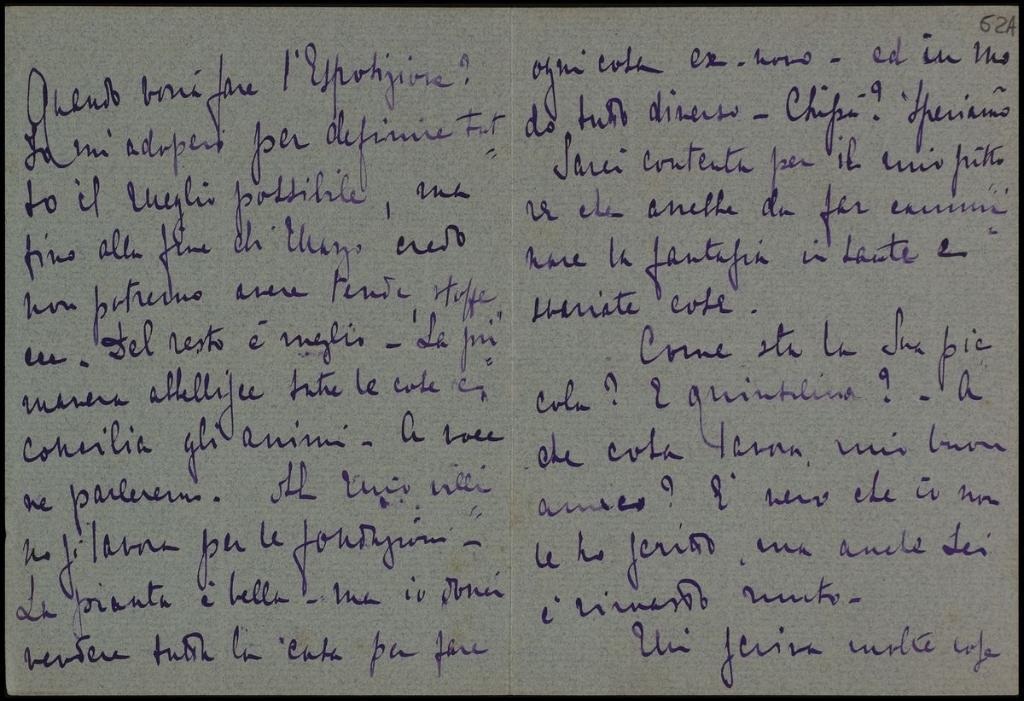 Quando vorrà fare l'Esposizione?
Io mi adopero per definire tut=
to il meglio possibile, ma
fino alla fine di Marzo credo
non potremo avere tende, stoffe
ecc. Del resto è meglio - La pri=
mavera abbellisce tutte le cose e
concilia gli animi - A voce
ne parleremo. Al mio villi=
no si lavora per le fondazioni -
La pianta è bella - ma io dovrei
vendere tutta la casa per fare
62A
ogni cosa ex-novo - ed in mo
do tutto diverso - Chissà? Speriamo
Sarei contenta per il mio pitto
re che avrebbe da far cammi=
nare la fantasia in tante e
svariate cose.
Come sta la Sua pic
cola? E Quintilina? - A
che cosa lavora, mio buon
amico? E' vero che io non
le ho scritto, ma anche Lei
è rimasto muto -
Mi scriva molte cose